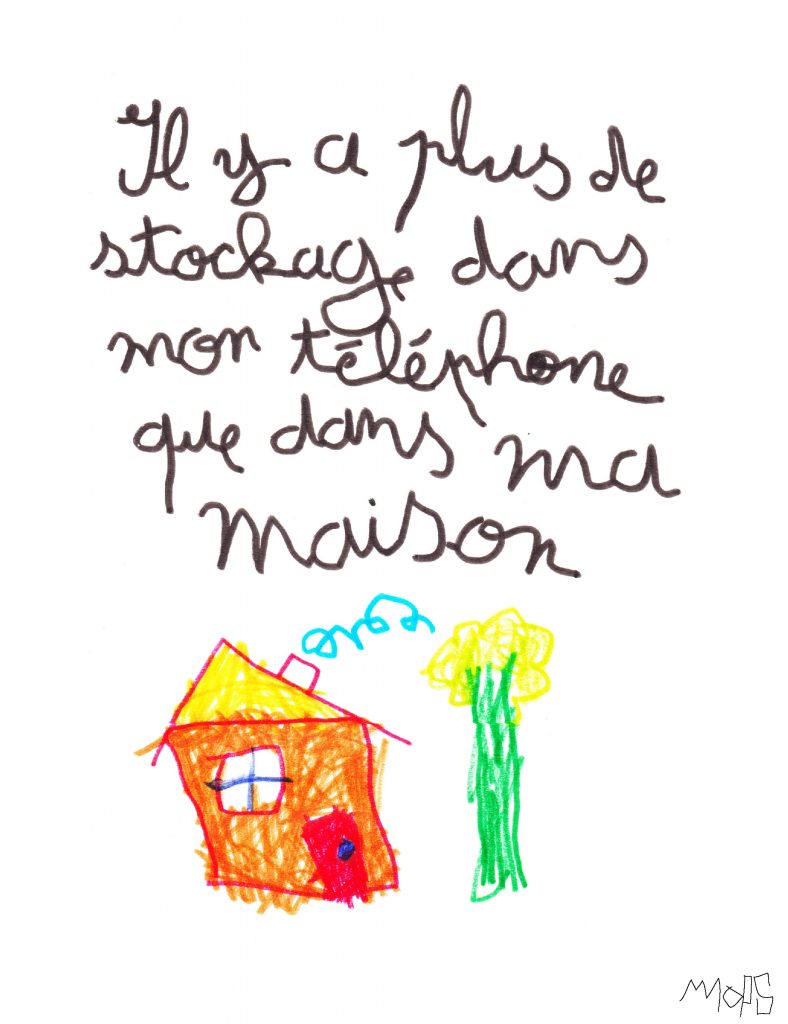 Il y a plus de
stockage dans
mon téléphone
que dans ma
maison
MOPS